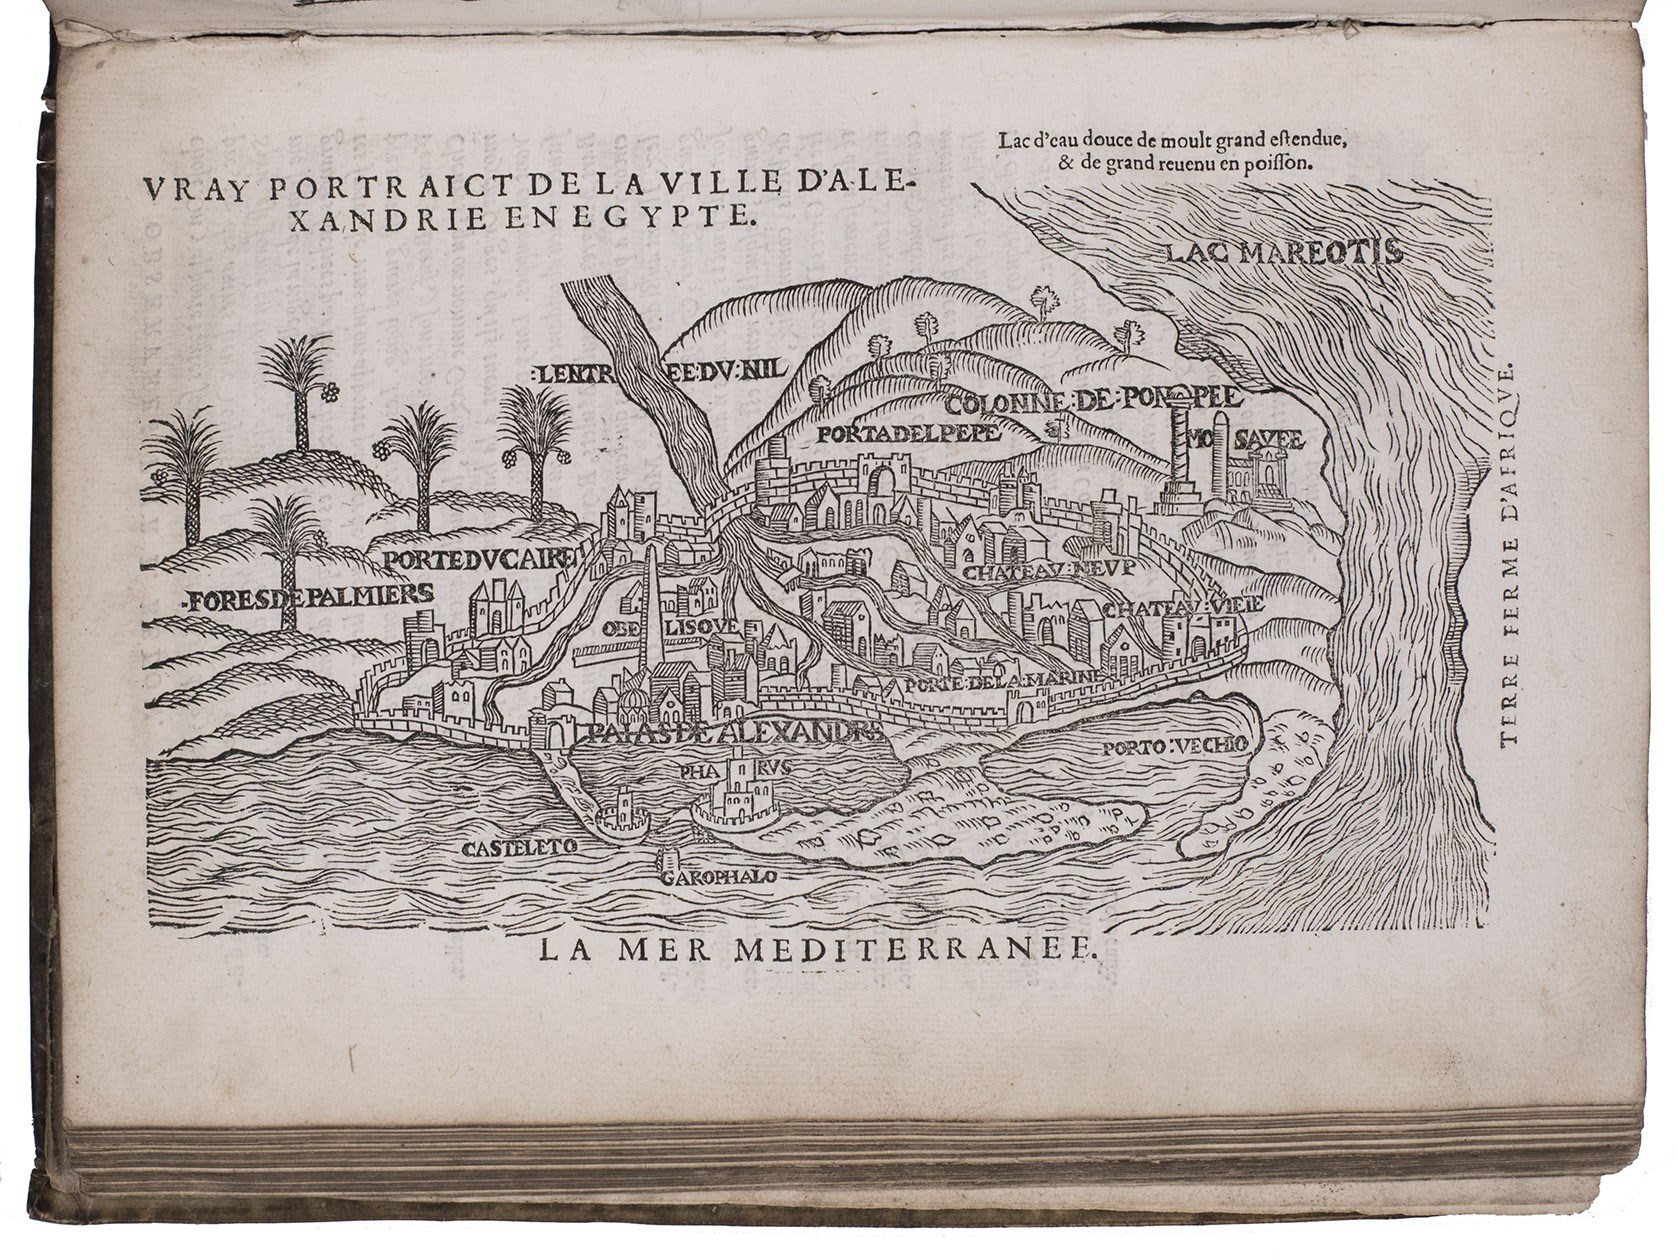 Lac d'eau douce de moult grand estendue,
& de grand reuenu en poisson.
VRAY PORTRAICT DE LA VILLE D'ALE-
XANDRIE EN EGYPTE.
LAC MAREOTIS
:LENTREE:DV:NIL
COLONNE:DE:PONPEE
PORTADELPEPE
MOSAVEE
TERRE FERME D'AFRIQVE.
PORTEDVCAIRE
CHATEAV:NEVF
FORESDEPALMIERS
CHATEAV:VIEIE
OBELISQVE
PORTE:DE:LA:MARINE
PALASDE ALEXANDRE
PORTO:VECHIO
PHARVS
CASTELETO
GAROPHALO
LA MER MEDITERRANEE.